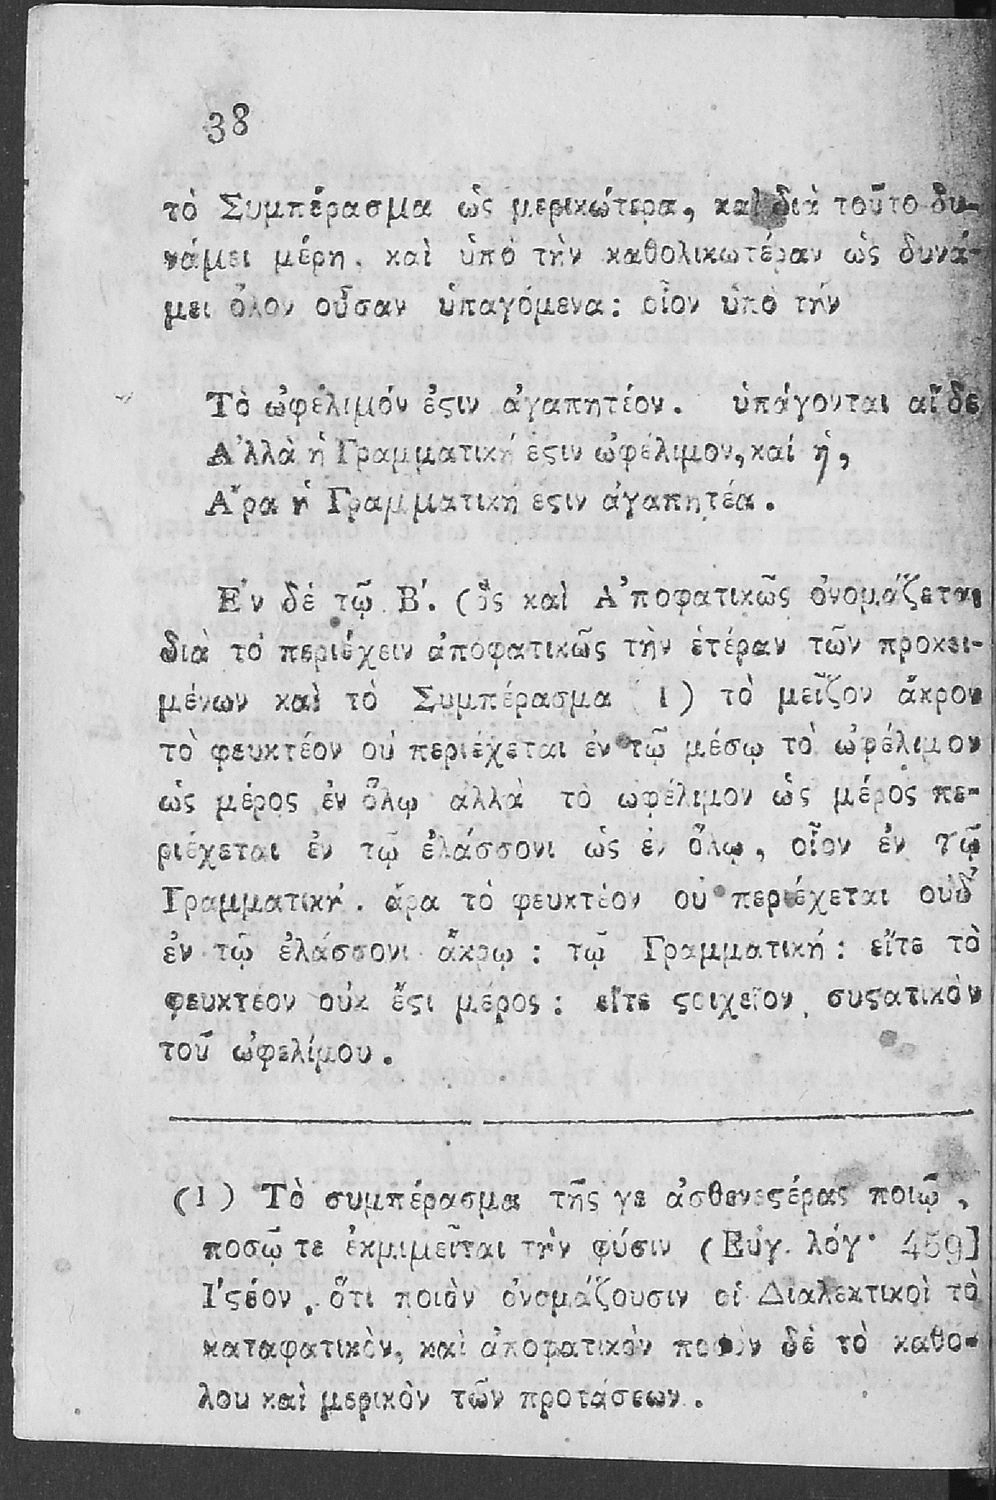 38
τὸ Συμπέρασμα ὡς μερικώτερα, καὶ διὰ τοῦτο δυ-
νάμει μέρη, καὶ ὑπὸ τὴν καθολικωτέραν ὡς δυνά-
μει ὅλον οὖσαν ὑπαγόμενα: οἷον ὑπὸ τήν
Τὸ ὠφέλιμόν ἐϛιν ἀγαπητέον. ὑπάγονται αἵ δε
Α᾿λλὰ ἡ Γραμματική εϛιν ὠφέλιμον, καί ἡ,
Α῎ρα ἡ Γραμματική εϛιν ἀγαπητέα.
Ε᾿ν δὲ τῷ Β΄. (ὃς καὶ Α᾿ποφατικῶς ὀνομάζεται
διὰ τὸ περιέχειν ἀποφατικῶς τὴν ἑτέραν τῶν προκει-
μένων καὶ τὸ Συμπέρασμα 1) τὸ μεῖζον ἄκρον
τὸ φευκτέον οὐ περιέχεται ἐν τῷ μέσῳ τὸ ὠφέλιμον
ὡς μέρος ἐν ὅλῳ ἀλλὰ τὸ ωφέλιμον ὡς μέρος πε-
ριέχεται ἐν τῷ ἐλάσσονι ὡς ἐν ὅλῳ, οἷον ἐν τῷ
Γραμματική. ἄρα τὸ φευκτέον οὐ περιέχεται οὐδ̓
ἐν τῷ ἐλάσσονι ἄκρῳ: τῷ Γραμματική: εἴτε τὸ
φευκτέον οὐκ ἔϛι μέρος: εἴτε ϛοιχεῖον, συϛατικὸν
τοῦ ὠφελίμου.
(1) Τὸ συμπέρασμα τῆς γε ἀσθενεϛέρας ποιῷ,
ποσῷ τε ἐκμιμεῖται τὴν φύσιν (Εὐγ. λόγ· 459]
Ι᾿ϛέον, ὅτι ποιὸν ὀνομάζουσιν οἱ Διαλεκτικοὶ τὸ
καταφατικὸν, καὶ ἀποφατικὸν ποσὸν δὲ τὸ καθο-
λου καὶ μερικὸν τῶν προτάσεων.